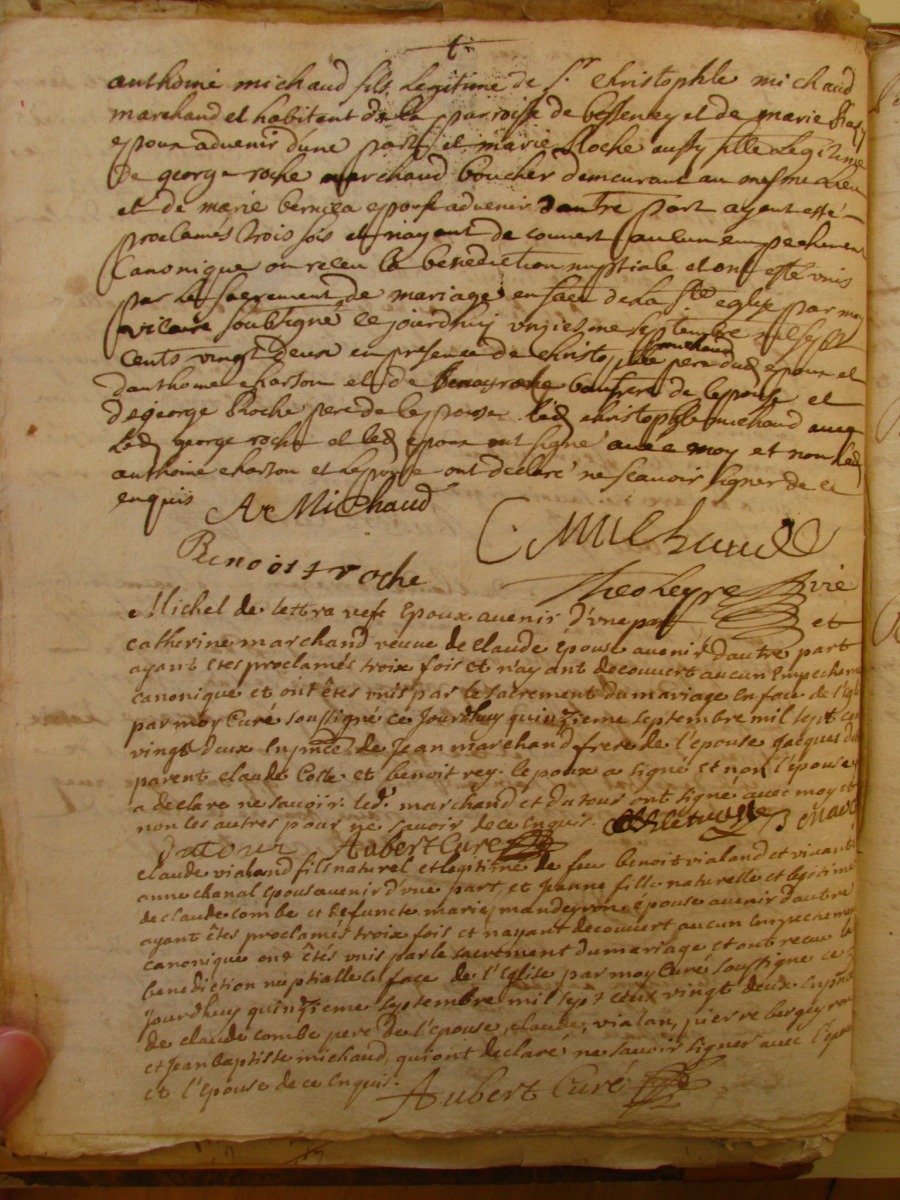 anthoine michaud fils legitime de s.r christophle michaud
marchand et habitant de la parroisse de bessenay et de marie
epoux advenir d'une part et marie Roche aussy fille legitime
de george roche marchand boucher demeurant au mesme lieu
et de marie epouse advenir d'autre part ayent esté
proclames trois fois et nayant decouvert aucun empechement
Canonique on receu la benediction nuptiale et ont esté unis
par le sacrement de mariage en face de la ste eglise par moy
vicaire soubsigné ce jourdhuy unziesme septembre mil sept
cents vingt deux en presence de christophle michaud pere dud epoux et
danthoine charson et de benoy roche beaufrere de lepouse et
de george Roche pere de lepouse led christophle michaud avec
led george roche et led epoux ont signé avec moy et non led
anthoine charson et lepouse ont declaré ne scavoir signer de ce
enquis
A Michaud
C Michaud
Benoist roche
Theoleyre vic
Michel de lettra veuf Epoux avenir d'une part et
catherine marchand veuve de claude epouse avenir d'autre part
ayant etes proclamés troix fois et n'ayant decouvert aucun Empechem
canonique et ont êtés unis par le sacrement du mariage En face de l'Egli
par moy Curé soussigné ce Jourdhuy quinzieme septembre mil sept cen
vingt deux En pnce de Jean marchand frere de l'epouse Jacques du
parent claude Coste et benoit rey. lepoux a signé et non l'epouse
a declare ne savoir. led. marchand et dutour ont signé avec moy et
non les autres pour ne savoir de ce Enquis.
dutour Aubert Curé
claude vialand fils naturel et legitime de feu benoit vialand et vivante
anne chanal epoux avenir d'une part et Jeanne fille naturelle et legitime
de claude combe et defuncte marie mandeyron epouse avenir d'autre
ayant êtes proclamés troix fois et nayant decouvert aucun Empechemen
canonique ont êtés unis par le sacrement du mariage et ont recue la
benediction nuptialle En face de l'Eglise par moy Curé soussigne ce
Jourdhuy quinzieme septembre mil sept cent vingt deux En pnce
de claude combe pere de l'epouse, claude vialan, pierre bergeyron
et Jean baptiste michaud, qui ont declaré ne savoir signer avec l'epoux
et l'Epouse de ce Enquis.
Aubert Curé